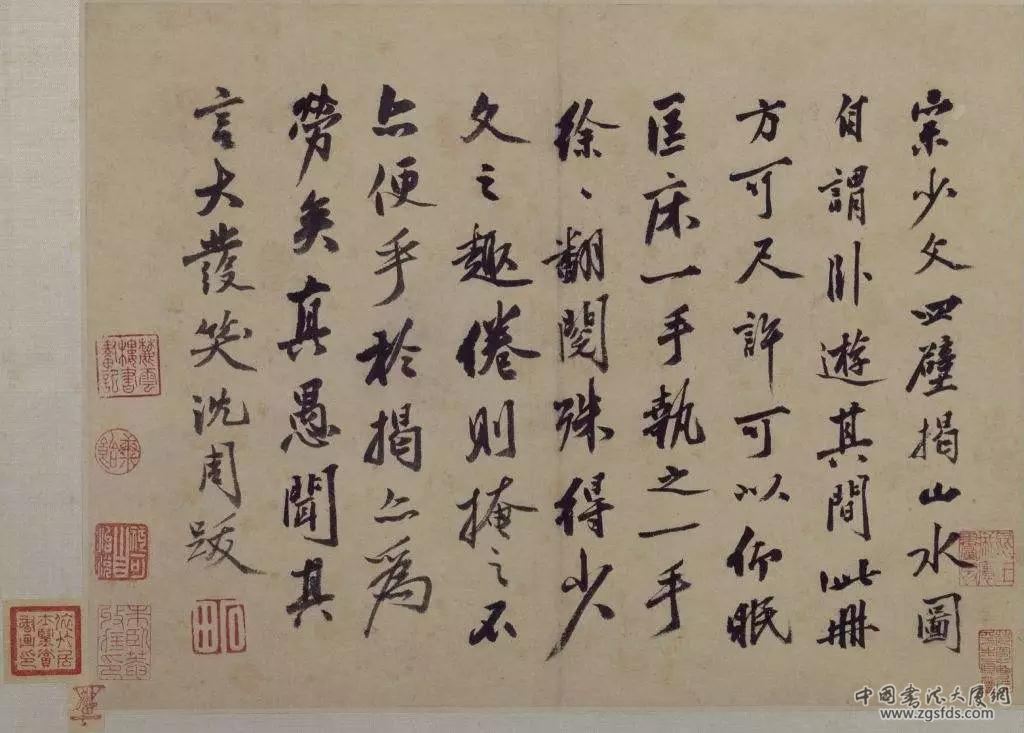 宗少文四壁揭山水圖
自謂卧遊其間此冊
方可尺許可以仰眠
匡床一手執之一手
徐〻翻閱殊得少
文之趣倦則掩之不
亦便乎於揭亦爲
勞矣真愚聞其
言大發笑沈周跋
中国书法大厦網
www.zgsfds.com